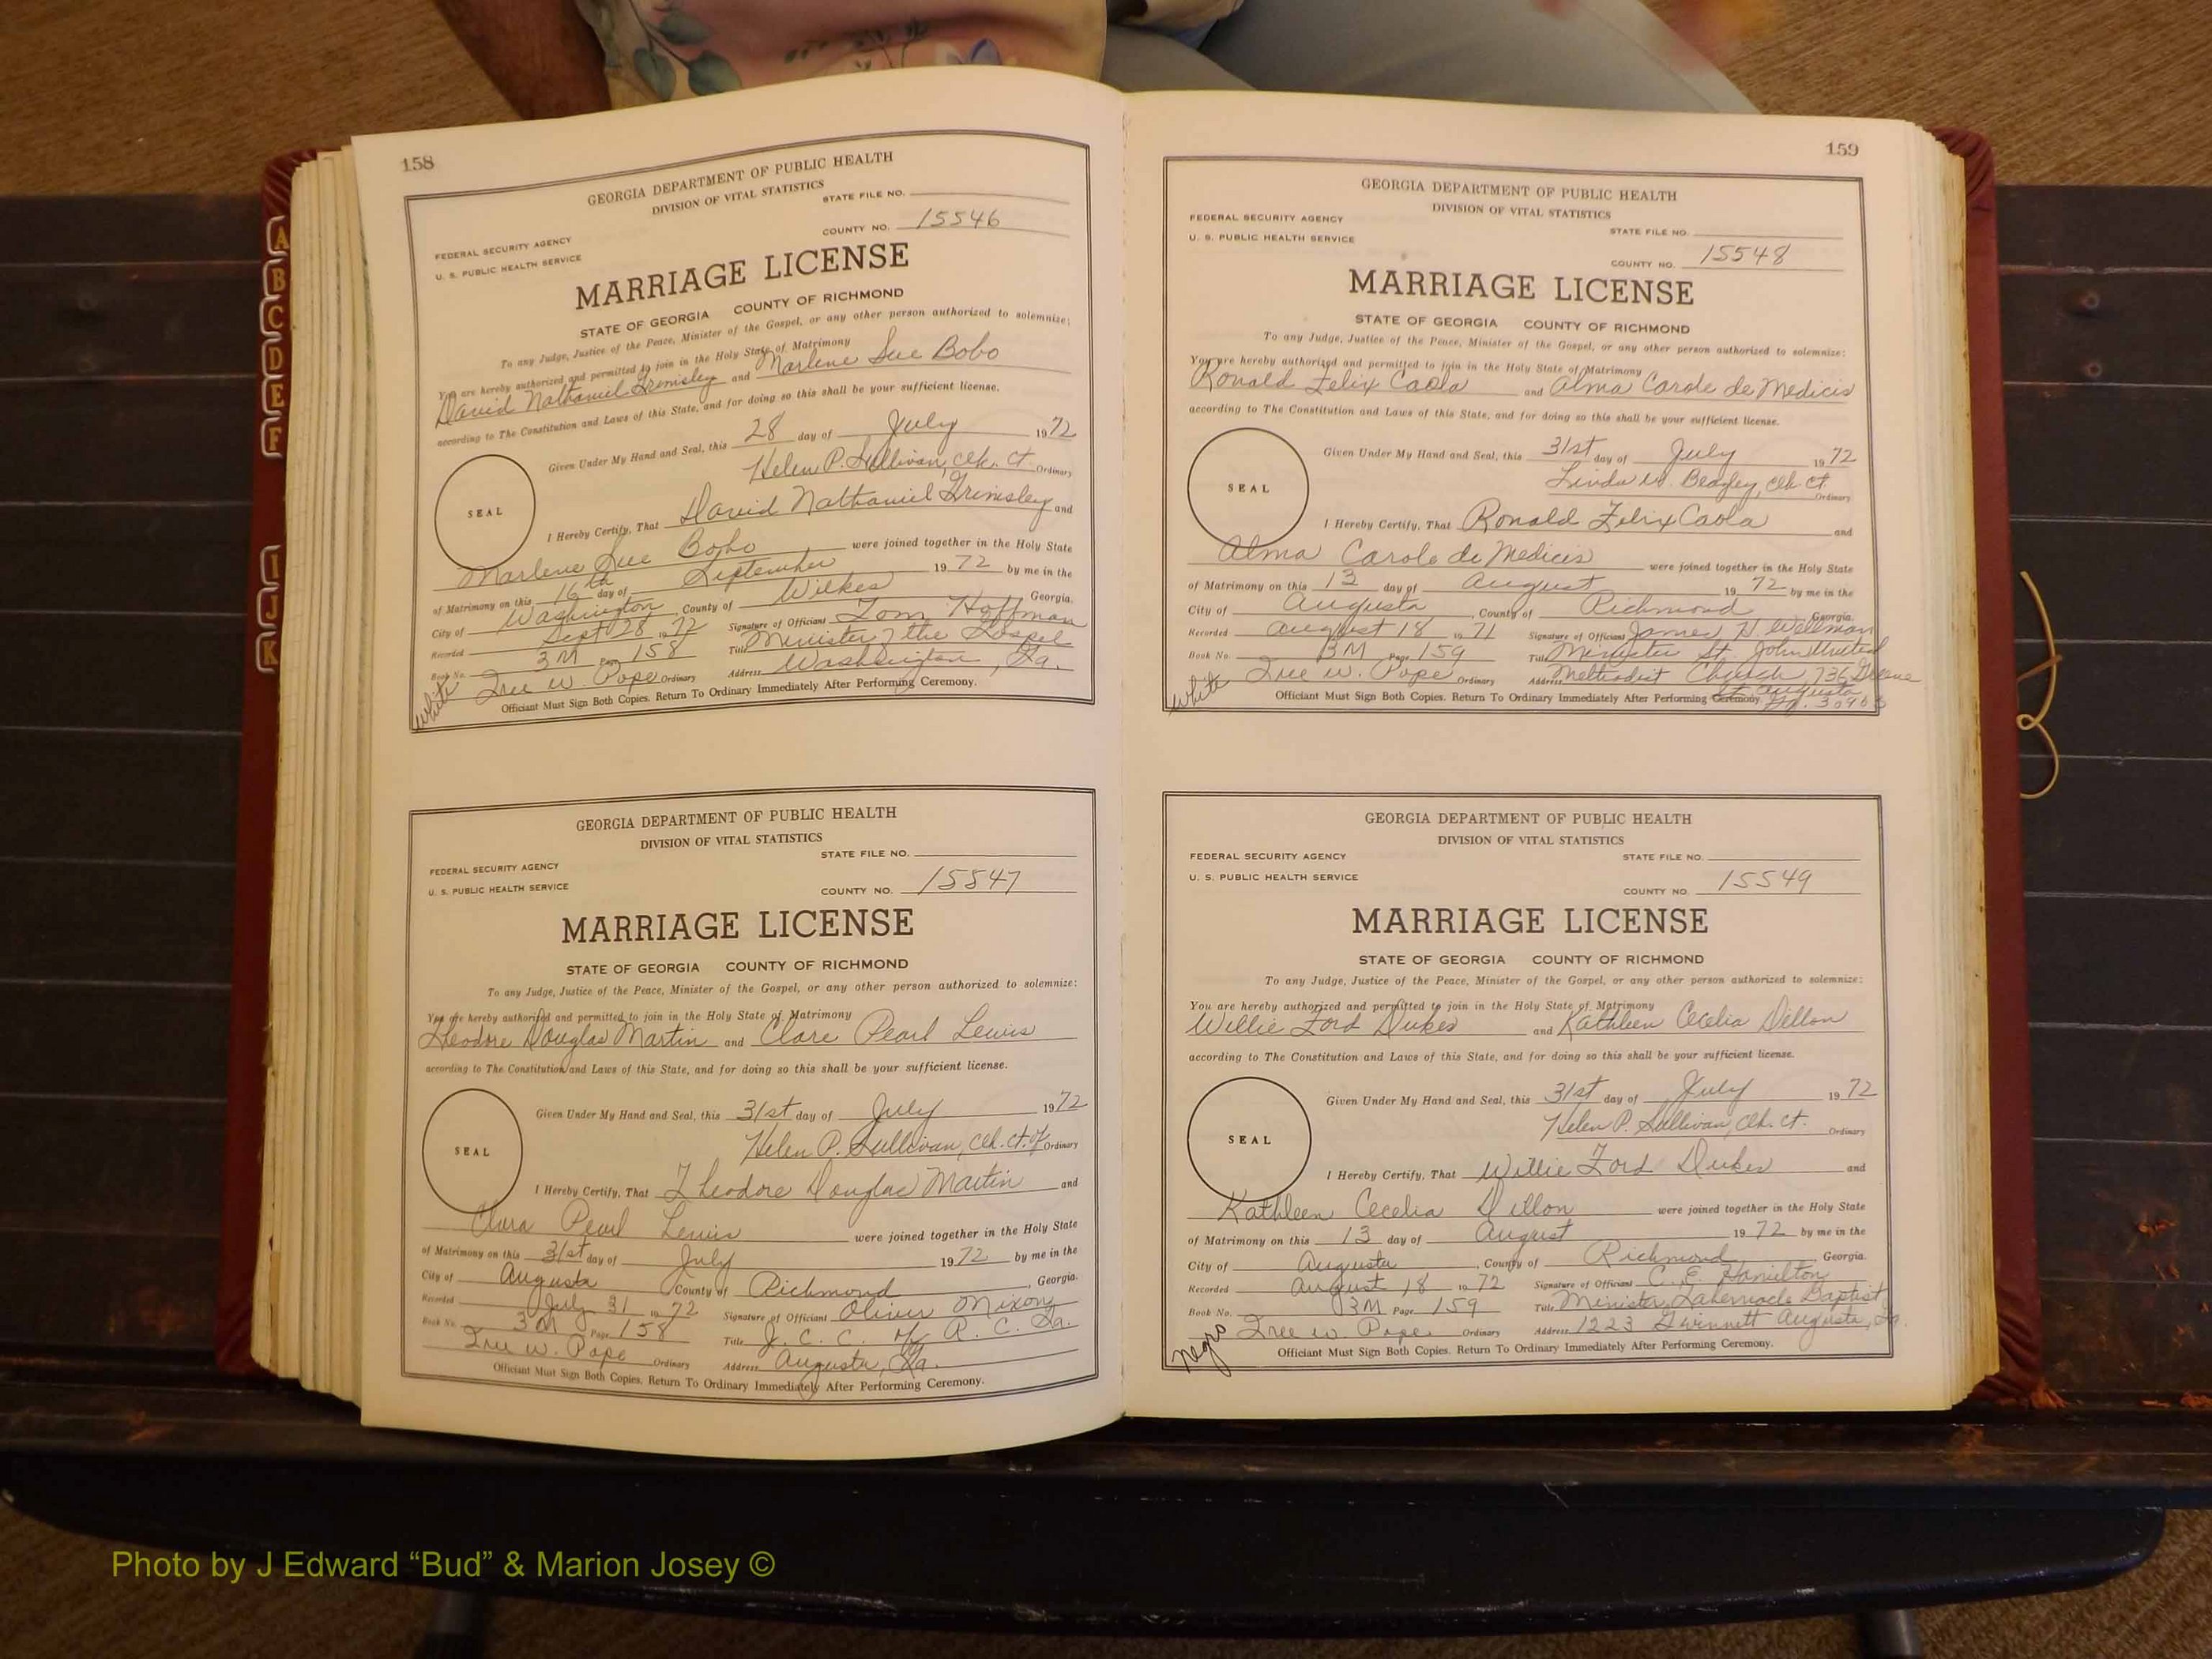 158
GEORGIA DEPARTMENT OF PUBLIC HEALTH
DIVISION OF VITAL STATISTICS
STATE FILE NO.
FEDERAL SECURITY AGENCY
COUNTY NO. 15546
U. S. PUBLIC HEALTH SERVICE
MARRIAGE LICENSE
STATE OF GEORGIA COUNTY OF RICHMOND
To any Judge, Justice of the Peace, Minister of the Gospel, or any other person authorized to solemnize:
You are hereby authorized and permitted to join in the Holy State of Matrimony
David Nathaniel Grimsley and Marlene Sue Bobo
according to The Constitution and Laws of this State, and for doing so this shall be your sufficient license.
Given Under My Hand and Seal, this 28 day of July 1972
Helen P. Sullivan, clk. ct. Ordinary
SEAL
I Hereby Certify, That David Nathaniel Grimsley and
Marlene Sue Bobo were joined together in the Holy State
of Matrimony on this 16th day of September 1972 by me in the
City of Washington, County of Wilkes Georgia.
Recorded Sept 28 1972 Signature of Officiant Tom Hoffman
Book No. 3M Page 158 Title Minister of the Gospel
Pope Ordinary Address Washington, Ga.
White
Officiant Must Sign Both Copies. Return To Ordinary Immediately After Performing Ceremony.
GEORGIA DEPARTMENT OF PUBLIC HEALTH
DIVISION OF VITAL STATISTICS
STATE FILE NO.
FEDERAL SECURITY AGENCY
U. S. PUBLIC HEALTH SERVICE
COUNTY NO. 15547
MARRIAGE LICENSE
STATE OF GEORGIA COUNTY OF RICHMOND
To any Judge, Justice of the Peace, Minister of the Gospel, or any other person authorized to solemnize:
You are hereby authorized and permitted to join in the Holy State of Matrimony
Theodore Douglas Martin and Clare Pearl Lewis
according to The Constitution and Laws of this State, and for doing so this shall be your sufficient license.
Given Under My Hand and Seal, this 31st day of July 1972
Helen P. Sullivan, clk. ct. of Ordinary
SEAL
I Hereby Certify, That Theodore Douglas Martin and
Clara Pearl Lewis were joined together in the Holy State
of Matrimony on this 31st day of July 1972 by me in the
City of Augusta County of Richmond, Georgia.
Recorded July 31 1972 Signature of Officiant Oliver Mixon
Book No. 3M Page 158 Title J. C. C. of R. C. Ga.
Pope Ordinary Address Augusta, Ga.
Officiant Must Sign Both Copies. Return To Ordinary Immediately After Performing Ceremony.
159
GEORGIA DEPARTMENT OF PUBLIC HEALTH
DIVISION OF VITAL STATISTICS
FEDERAL SECURITY AGENCY
STATE FILE NO.
U. S. PUBLIC HEALTH SERVICE
COUNTY NO. 15548
MARRIAGE LICENSE
STATE OF GEORGIA COUNTY OF RICHMOND
To any Judge, Justice of the Peace, Minister of the Gospel, or any other person authorized to solemnize:
You are hereby authorized and permitted to join in the Holy State of Matrimony
Ronald Felix Caola and Alma Carole de Medicis
according to The Constitution and Laws of this State, and for doing so this shall be your sufficient license.
Given Under My Hand and Seal, this 31st day of July 1972
Linda W. Beazley, clk. ct. Ordinary
SEAL
I Hereby Certify, That Ronald Felix Caola and
Alma Carole de Medicis were joined together in the Holy State
of Matrimony on this 13 day of August 1972 by me in the
City of Augusta, County of Richmond Georgia.
Recorded August 18 1971 Signature of Officiant James H. Wellman
Book No. 3M Page 159 Title Minister St. John United
Pope Ordinary Address Methodist Church, 736 Greene
St. Augusta
White
Officiant Must Sign Both Copies. Return To Ordinary Immediately After Performing Ceremony.
GEORGIA DEPARTMENT OF PUBLIC HEALTH
DIVISION OF VITAL STATISTICS
FEDERAL SECURITY AGENCY
STATE FILE NO.
U. S. PUBLIC HEALTH SERVICE
COUNTY NO. 15549
MARRIAGE LICENSE
STATE OF GEORGIA COUNTY OF RICHMOND
To any Judge, Justice of the Peace, Minister of the Gospel, or any other person authorized to solemnize:
You are hereby authorized and permitted to join in the Holy State of Matrimony
Willie Ford Dukes and Kathleen Cecelia Dillon
according to The Constitution and Laws of this State, and for doing so this shall be your sufficient license.
Given Under My Hand and Seal, this 31st day of July 1972
Helen P. Sullivan, clk. ct. Ordinary
SEAL
I Hereby Certify, That Willie Ford Dukes and
Kathleen Cecelia Dillon were joined together in the Holy State
of Matrimony on this 13 day of August 1972 by me in the
City of Augusta, County of Richmond Georgia.
Recorded August 18 1972 Signature of Officiant C. E. Hamilton
Book No. 3M Page 159 Title Minister Tabernacle Baptist
Pope Ordinary Address 1223 Gwinnett Augusta, Ga.
Negro
Officiant Must Sign Both Copies. Return To Ordinary Immediately After Performing Ceremony.
A
B
C
D
E
F
I
J
K
Photo by J Edward “Bud” & Marion Josey ©